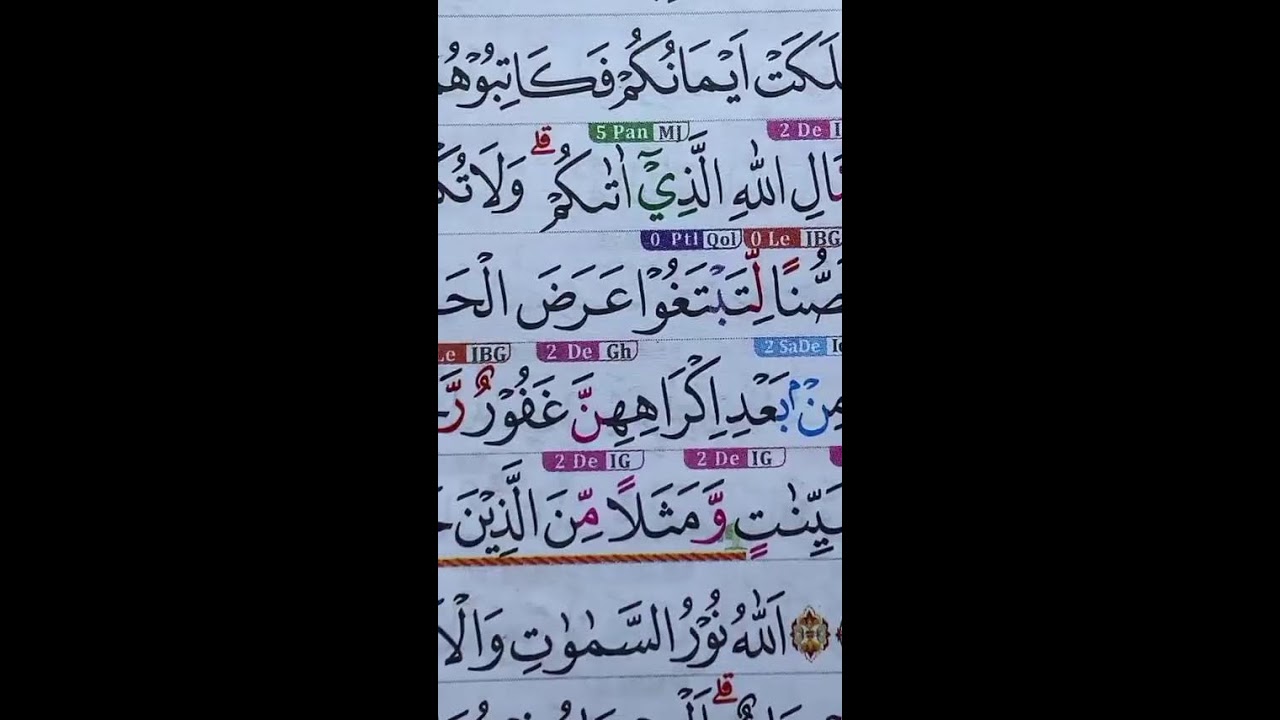 مَلَكَتْ اَيْمَانُكُمْ فَكَاتِبُوْهُمْ
5 Pan MJ 2 De
مَّالِ اللّٰهِ الَّذِيْٓ اٰتٰىكُمْ ۗ وَلَا تُكْ
0 Ptl Qol 0 Le IBG
صُّنًا لِّتَبْتَغُوْا عَرَضَ الْحَ
Le IBG 2 De Gh 2 SaDe
مِنْۢ بَعْدِ اِكْرَاهِهِنَّ غَفُوْرٌ رَّ
2 De IG 2 De IG
بَيِّنٰتٍ وَّمَثَلًا مِّنَ الَّذِيْنَ خَ
اَللّٰهُ نُوْرُ السَّمٰوٰتِ وَالْاَ